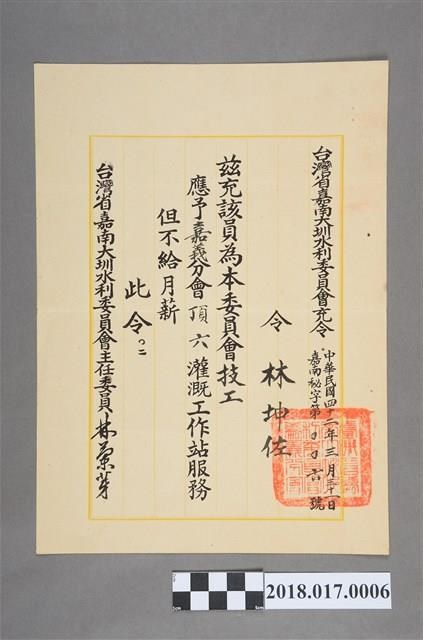 台灣省嘉南大圳水利委員會充令
中華民國四十二年三月三十一日
嘉南秘字第 六號
令 林坤佐
茲充該員為本委員會技工
應予嘉義分會頂六灌溉工作站服務
但不給月薪
此令
台灣省嘉南大圳水利委員會主任委員 林蘭芽
2018.017.0006